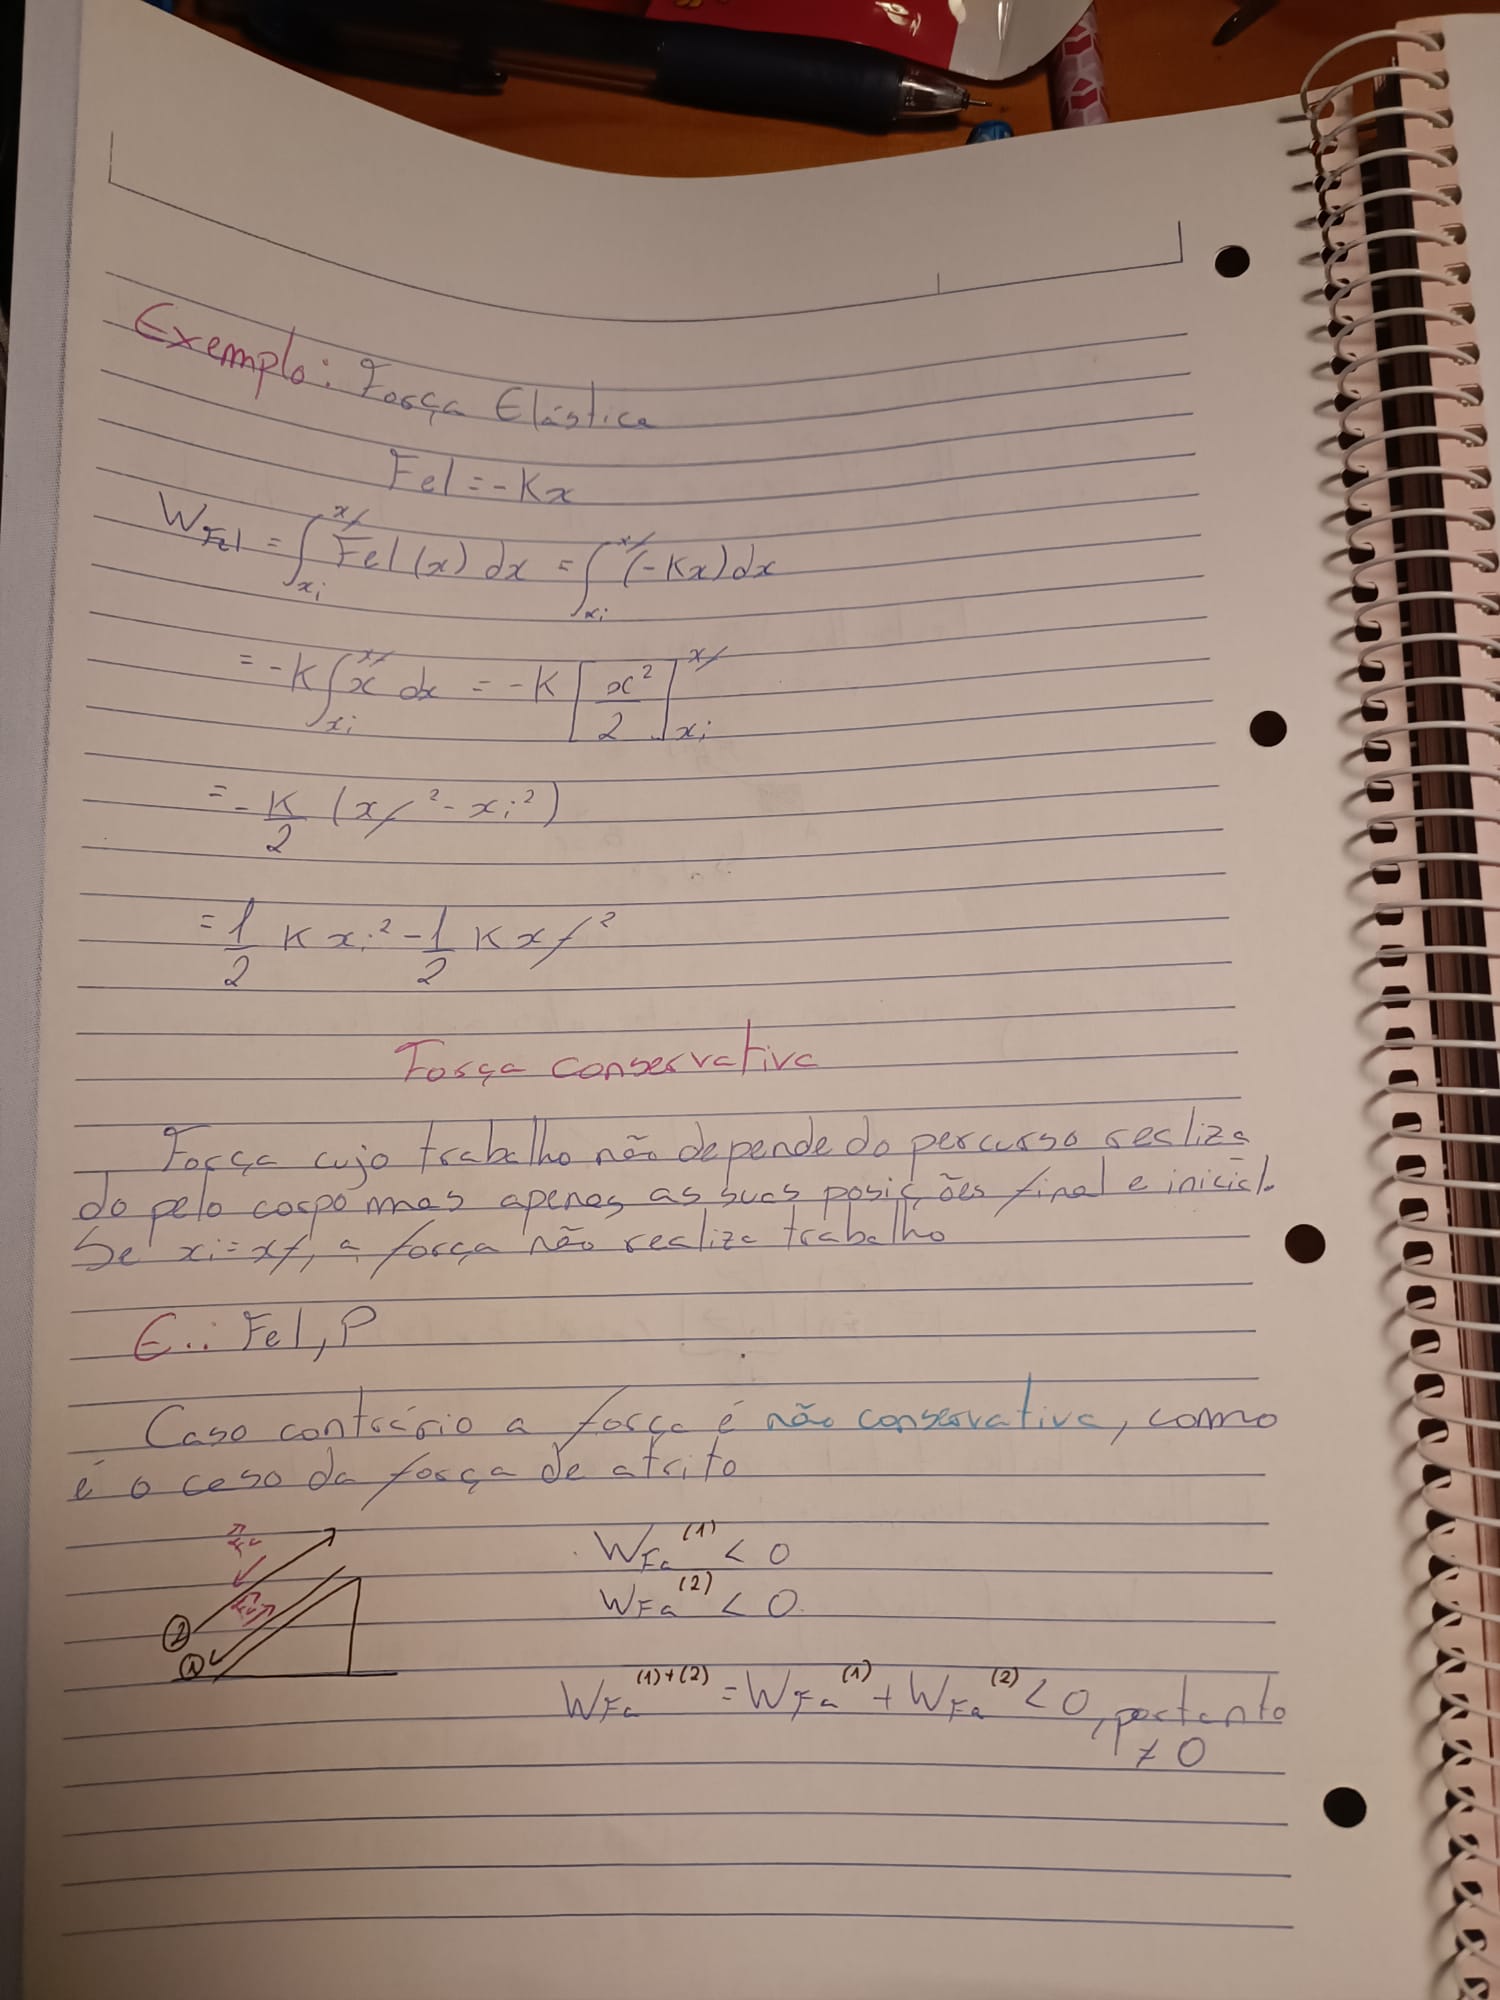 Exemplo: Força Elástica
Fel = -Kx
W_Fel = ∫_xi^xf Fel(x) dx = ∫_xi^xf (-Kx) dx
= -K ∫_xi^xf x dx = -K [x²/2]_xi^xf
= -K/2 (xf² - xi²)
= 1/2 K xi² - 1/2 K xf²
Força conservativa
Força cujo trabalho não depende do percurso realiza
do pelo corpo mas apenas as suas posições final e inicial.
Se xi = xf, a força não realiza trabalho
E..: Fel, P
Caso contrário a força é não conservativa, como
é o caso da força de atrito
W_Fa^(1) < 0
W_Fa^(2) < 0
(2)
(1)
W_Fa^(1)+(2) = W_Fa^(1) + W_Fa^(2) < 0, portanto
≠ 0